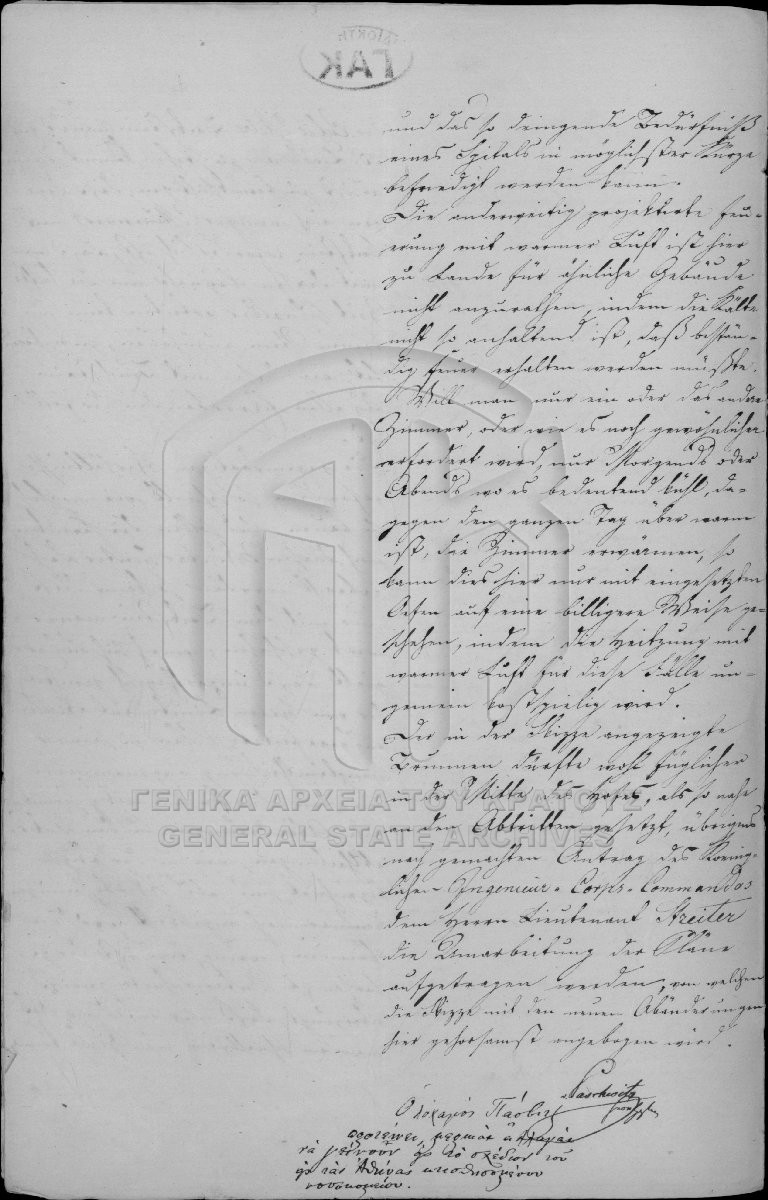 ΓΑΚ
und das so dringende Bedürfniß
eines Spitals in möglichster Kürze
befriedigt werden kann.
Die anderweitig projektirte Feu-
erung mit warmer Luft ist hier
zu Lande für ähnliche Gebäude
nicht anzurathen, indem die Kälte
nicht so anhaltend ist, daß bestän-
dig Feuer erhalten werden müßte.
Will man nur ein oder das andere
Zimmer, oder wie es noch gewöhnlicher
erfordert wird, nur Morgends oder
Abends wo es bedeutend kühl, da-
gegen den ganzen Tag über warm
ist, die Zimmer erwärmen, so
kann dies hier nur mit eingesetzten
Oefen auf eine billigere Weise ge-
schehen, indem die Heitzung mit
warmer Luft für diese Fälle un-
gemein kostspielig wird.
Der in der Skizze angezeigte
Brunnen dürfte wohl füglicher
in der Mitte des Hofes, als so nahe
an den Abtritten gesetzt, übrigens
nach gemachten Antrag des Koenig-
lichen Ingenieur-Corps-Commandos
dem Herrn Lieutenant Streiter
die Umarbeitung der Pläne
aufgetragen werden, von welchen
die Skizze mit den neuen Abänderungen
hier gehorsamst angebogen wird.
Paschwitz
Ὁ λοχαγός
προτείνει μερικὰς ἀλλαγὰς
νὰ γείνουν εἰς τὸ σχέδιον τοῦ
εἰς τὰς Ἀθήνας
νοσοκομείου.
ΓΕΝΙΚΑ ΑΡΧΕΙΑ ΤΟΥ ΚΡΑΤΟΥΣ
GENERAL STATE ARCHIVES